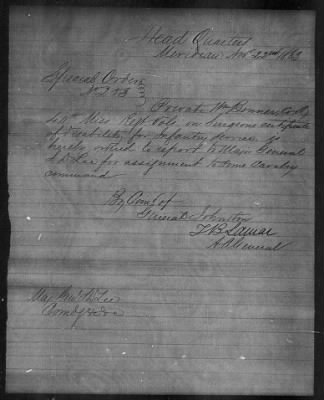 Head Quarters
Meridian Nov 22nd 1863
Special Orders
No 273
Private Wm Bonner, Co
Miss Regt
on Surgeons certificate
of disability for Infantry service is
hereby ordered to report to Major General
S D Lee for assignment to some Cavalry
command
By Comd of
General Johnston
T B Lamar
A A General
Maj Genl S D Lee
Comdg &c &c